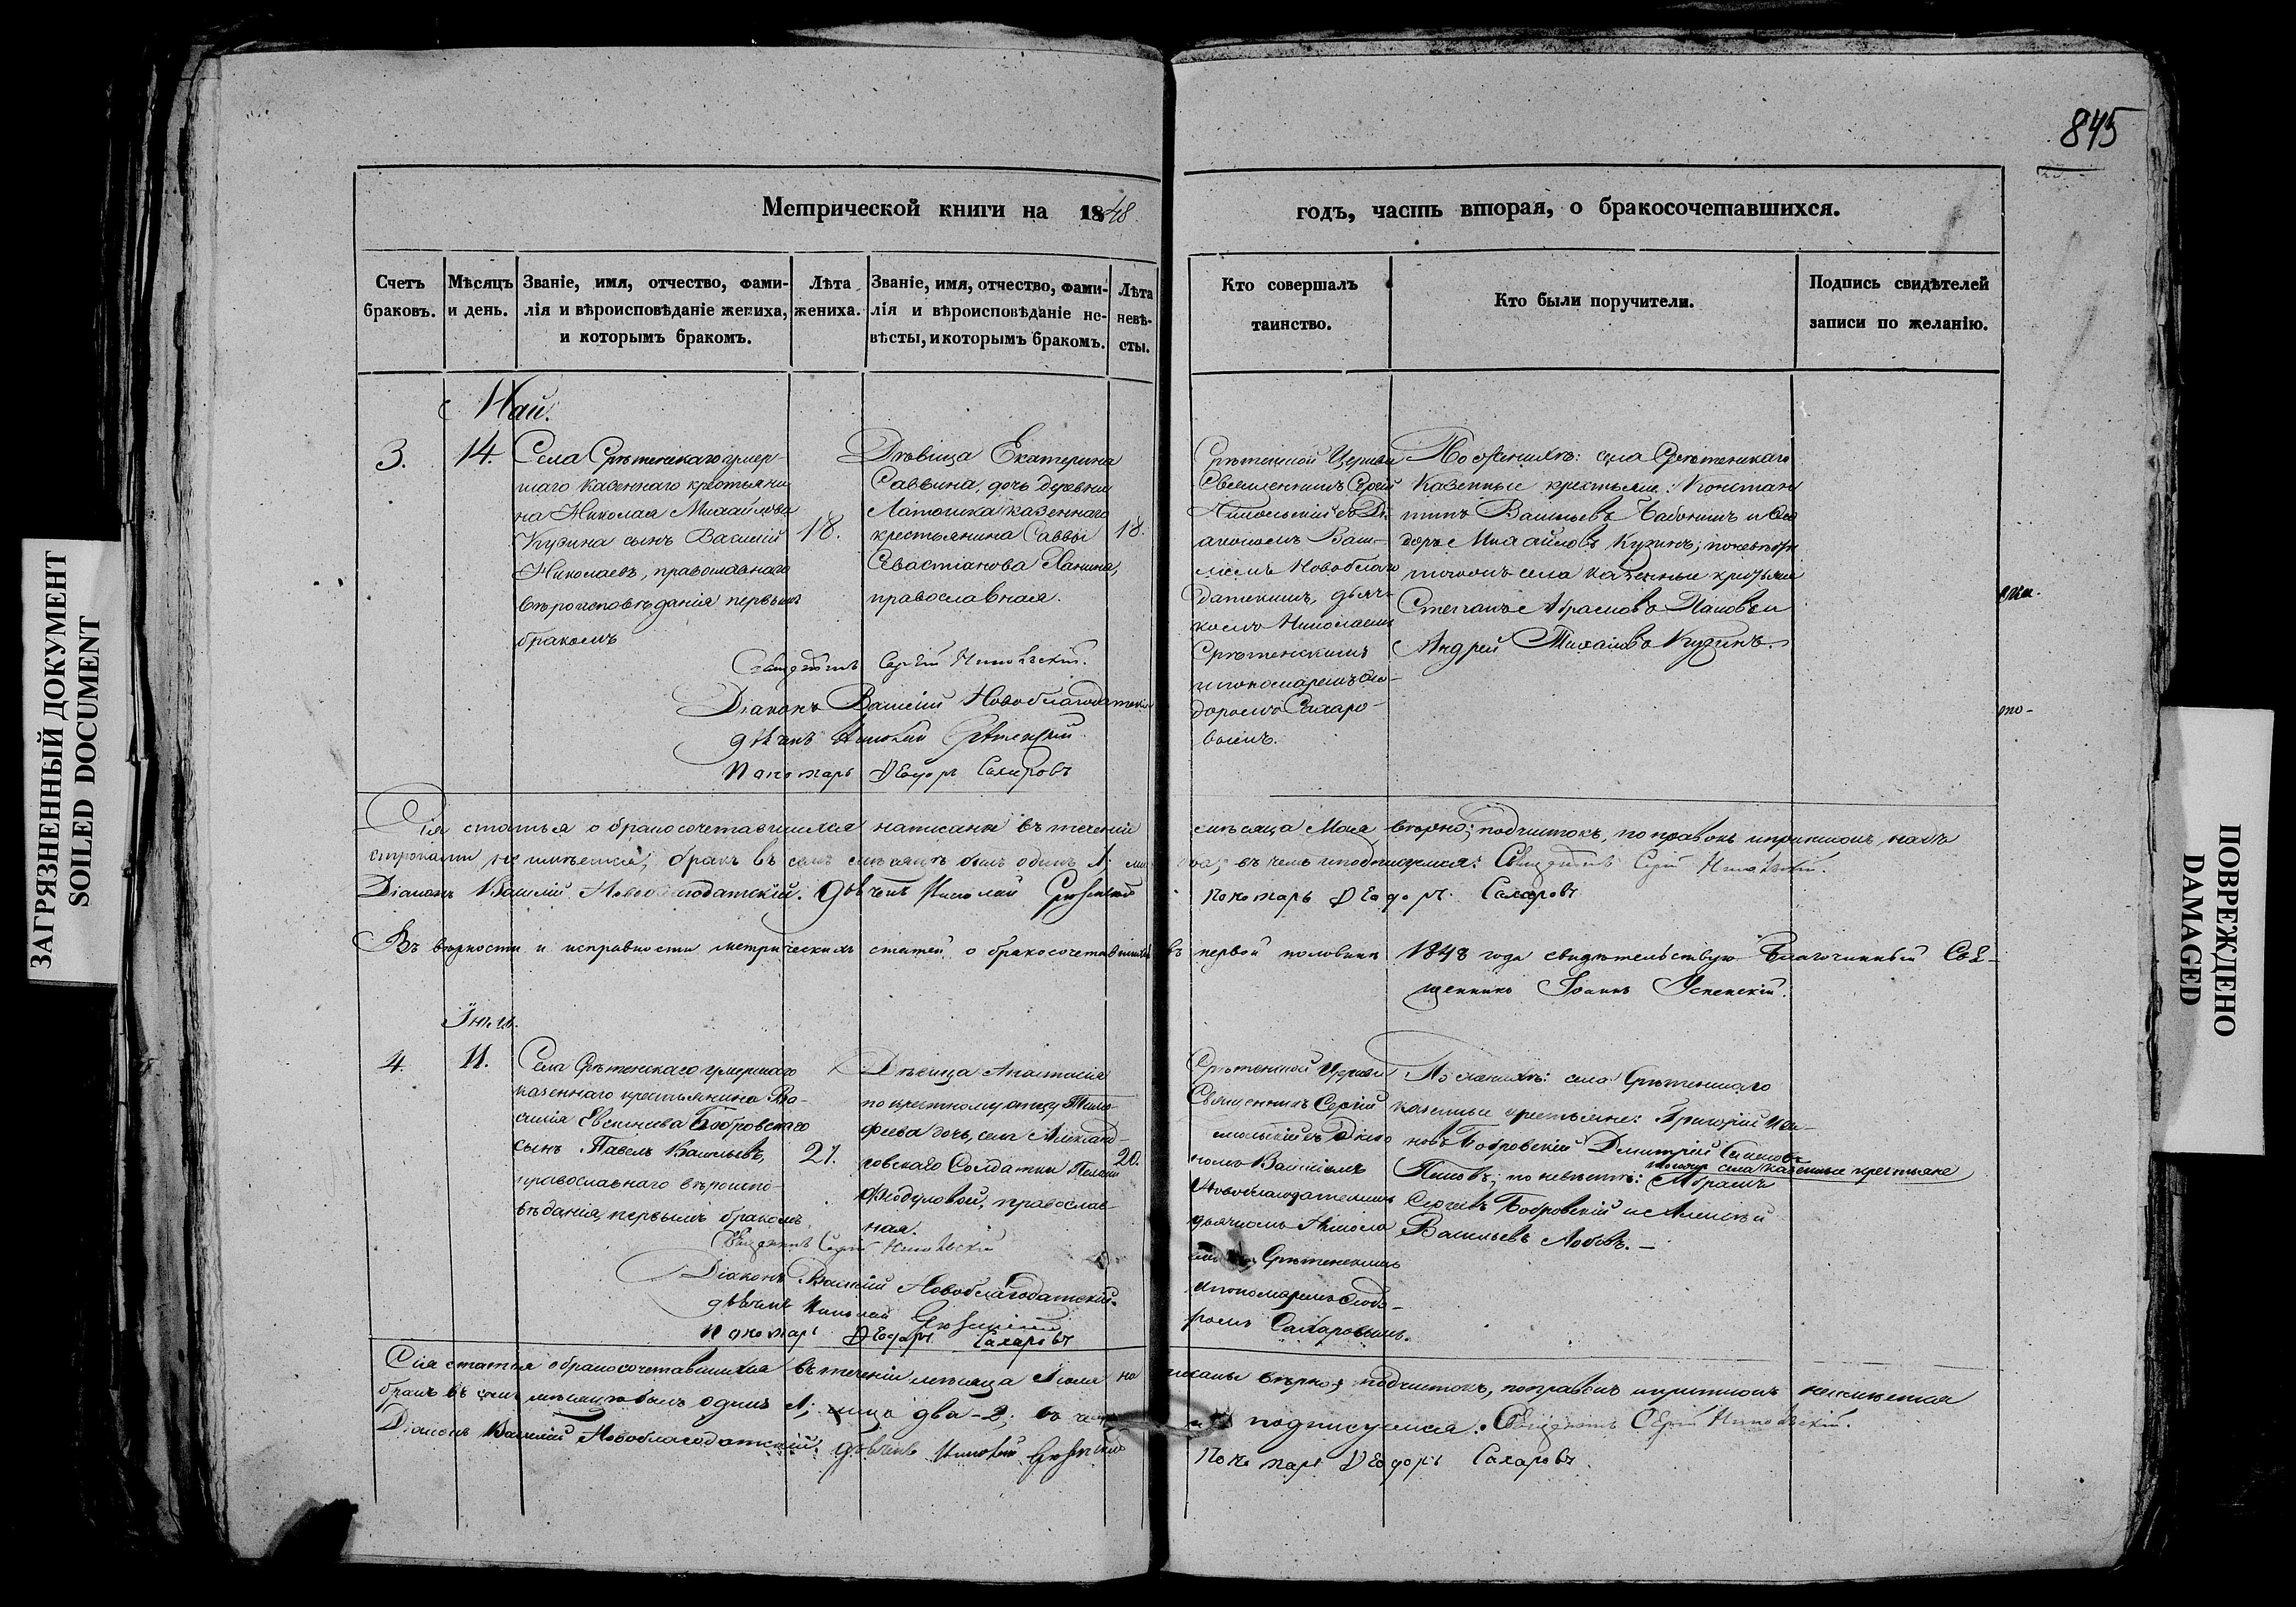 845
Метрической книги на 1848
годъ, часть вторая, о бракосочетавшихся.
Счетъ браковъ.
Мѣсяцъ и день.
Званіе, имя, отчество, фами-
лія и вѣроисповѣданіе жениха,
и которымъ бракомъ.
Лѣта
жениха.
Званіе, имя, отчество, фами-
лія и вѣроисповѣданіе не-
вѣсты, и которымъ бракомъ.
Лѣта
невѣ-
сты.
Кто совершалъ
таинство.
Кто были поручители.
Подпись свидѣтелей
записи по желанію.
Май.
3.
14.
Села Срѣтенскаго умер
шаго казеннаго крестьяни
на Николая Михайлова
Кузина сынъ Василій
Николаевъ, православнаго
вѣроисповѣданія первымъ
бракомъ
18.
Дѣвица Екатерина
Саввина, дочь деревни
казеннаго
крестьянина Саввы
Севастіанова Ханина,
православная.
18.
Срѣтенской Церкви
Священникъ Сергій
Никольскій съ Ді
акономъ Васи-
ліемъ Новоблаго
датскимъ, дьяч-
комъ Николаемъ
Срѣтенскимъ
и пономаремъ Ѳео-
доромъ Сахаро-
вымъ.
По женихѣ: села Срѣтенскаго
Казенные крестьяне: Констан
тинъ Васильевъ Бабкинъ и Ѳео
доръ Михайловъ Кузинъ; по невѣстѣ
тогожъ села казенные крестьяне
Степанъ Абрамовъ Пановъ и
Андрей Михайловъ Кузинъ.
Священникъ Сергій Никольскій.
Діаконъ Василій Новоблагодатскій
дьячекъ Николай Срѣтенскій
Пономарь Ѳеодоръ Сахаровъ
то-
Сія статья о бракосочетавшихся написана въ теченіи
мѣсяца Мая вѣрно; подчистокъ, поправокъ и приписокъ надъ
строками не имѣется; бракъ въ семъ мѣсяцѣ былъ одинъ 1.
въ чемъ и подписуемся: Священникъ Сергій Никольскій.
Діаконъ Василій Новоблагодатскій. Дьячекъ Николай Срѣтенскій
Пономарь Ѳеодоръ Сахаровъ
Въ вѣрности и исправности метрическихъ статей о бракосочетавшихся въ первой половинѣ 1848 года свидѣтельствую Благочинный Свя-
щенникъ Іоаннъ Успенскій.
4.
11.
Села Срѣтенскаго умершаго
казеннаго крестьянина Ва-
силія Евсигнѣева Бобровскаго
сынъ Павелъ Васильевъ,
православнаго вѣроиспо-
вѣданія, первымъ бракомъ
21.
Дѣвица Анастасія
по крестному отцу Тимо-
феева дочь, села Александ-
ровскаго Солдатки Пелагеи
Ѳеодуловой, православ-
ная.
20.
Срѣтенской Церкви
Священникъ Сергій
Никольскій съ Діако
номъ Василіемъ
Новоблагодатскимъ
дьячкомъ Никола
емъ Срѣтенскимъ
и пономаремъ Ѳеодо-
ромъ Сахаровымъ.
По женихѣ: села Срѣтенскаго
казенные крестьяне: Григорій Ива-
новъ Бобровскій Димитрій Симеоновъ
тогожъ села казенные крестьяне
Пановъ; по невѣстѣ: Абрамъ
Сергеевъ Бобровскій и Алексѣй
Васильевъ Лобовъ.
Священникъ Сергій Никольскій
Діаконъ Василій Новоблагодатскій.
дьячекъ Николай Срѣтенскій
Пономарь Ѳеодоръ Сахаровъ
Сія статья о бракосочетавшихся въ теченіи мѣсяца Іюля на
писаны вѣрно; подчистокъ, поправокъ и приписокъ не имѣется
бракъ въ семъ мѣсяцѣ былъ одинъ 1; лица два-2; въ чемъ
и подписуемся: Священникъ Сергій Никольскій.
Діаконъ Василій Новоблагодатскій. Дьячекъ Николай Срѣтенскій
Пономарь Ѳеодоръ Сахаровъ.
ЗАГРЯЗНЕННЫЙ ДОКУМЕНТ
SOILED DOCUMENT
ПОВРЕЖДЕНО
DAMAGED